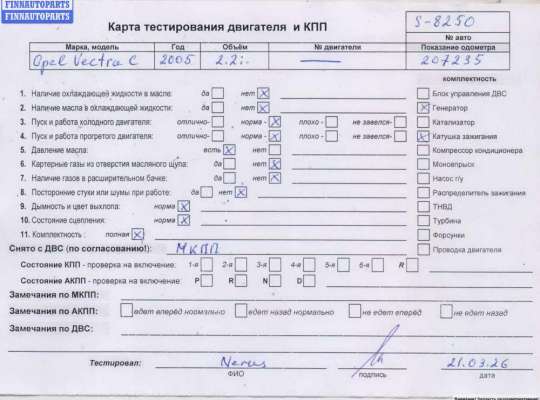 FINNAUTOPARTS
Карта тестирования двигателя и КПП
S-8250
№ авто
Марка, модель Год Объём № двигателя Показание одометра
Opel Vectra C 2005 2.2i. — 207235
комплектность
1. Наличие охлаждающей жидкости в масле: да нет Блок управления ДВС
2. Наличие масла в охлаждающей жидкости: да нет Генератор
3. Пуск и работа холодного двигателя: отлично- норма - плохо - не завелся- Катализатор
4. Пуск и работа прогретого двигателя: отлично- норма - плохо - не завелся- Катушка зажигания
5. Давление масла: есть нет Компрессор кондиционера
6. Картерные газы из отверстия масляного щупа: да нет Моновпрыск
7. Наличие газов в расширительном бачке: да нет Насос г/у
8. Посторонние стуки или шумы при работе: да нет Распределитель зажигания
9. Дымность и цвет выхлопа: норма ТНВД
10. Состояние сцепления: норма Турбина
11. Комплектность : полная Форсунки
Снято с ДВС (по согласованию!): МКПП Проводка двигателя
Состояние КПП - проверка на включение: 1-я 2-я 3-я 4-я 5-я 6-я R
Состояние АКПП - проверка на включение: P R N D
Замечания по МКПП:
Замечания по АКПП: едет вперёд нормально едет назад нормально не едет вперёд не едет назад
Замечания по ДВС:
Тестировал: 21.03.26
ФИО подпись дата